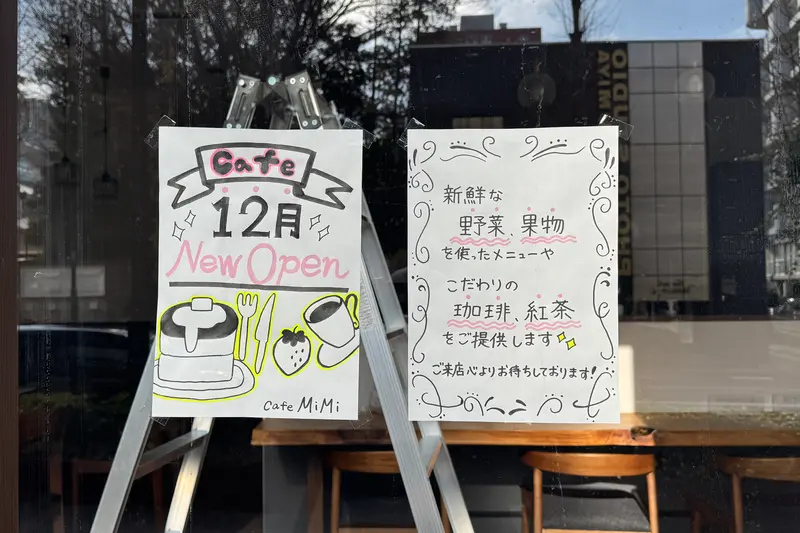 Cafe
12月
New Open
Cafe MiMi
新鮮な
野菜、果物
を使ったメニューや
こだわりの
珈琲、紅茶
をご提供します
ご来店心よりお待ちしております!